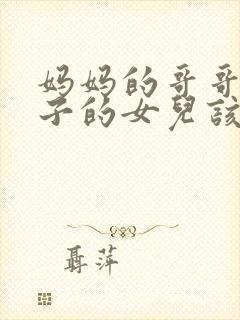 妈妈的哥哥
子的女兒該
聶萍